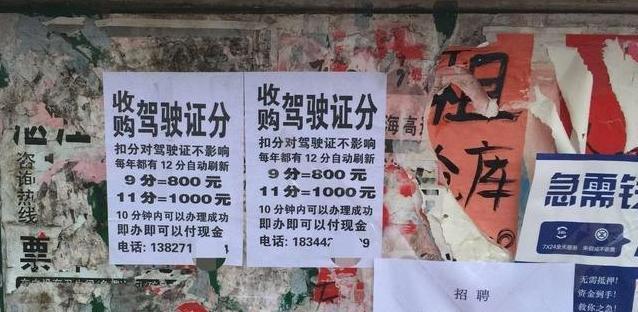 收购驾驶证分
扣分对驾驶证不影响
每年都有12分自动刷新
9分=800元
11分=1000元
10分钟内可以办理成功
即办即可以付现金
电话: 138271
收购驾驶证分
扣分对驾驶证不影响
每年都有12分自动刷新
9分=800元
11分=1000元
10分钟内可以办理成功
即办即可以付现金
电话: 18344 9
咨询热线
票
海高
租
库
急需钱
7X24全天服务
招聘
无需抵押!
资金到手!
救你之急!